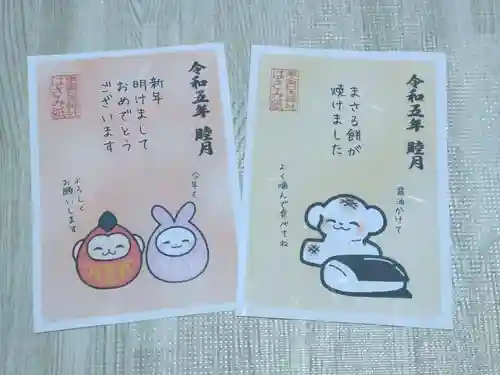 令和五年 睦月
新年
明けまして
おめでとう
ございます
今年も
よろしく
お願いします
はさみ紙
令和五年 睦月
まさる餅が
焼けました
醤油かけて
よく噛んで食べてね
はさみ紙